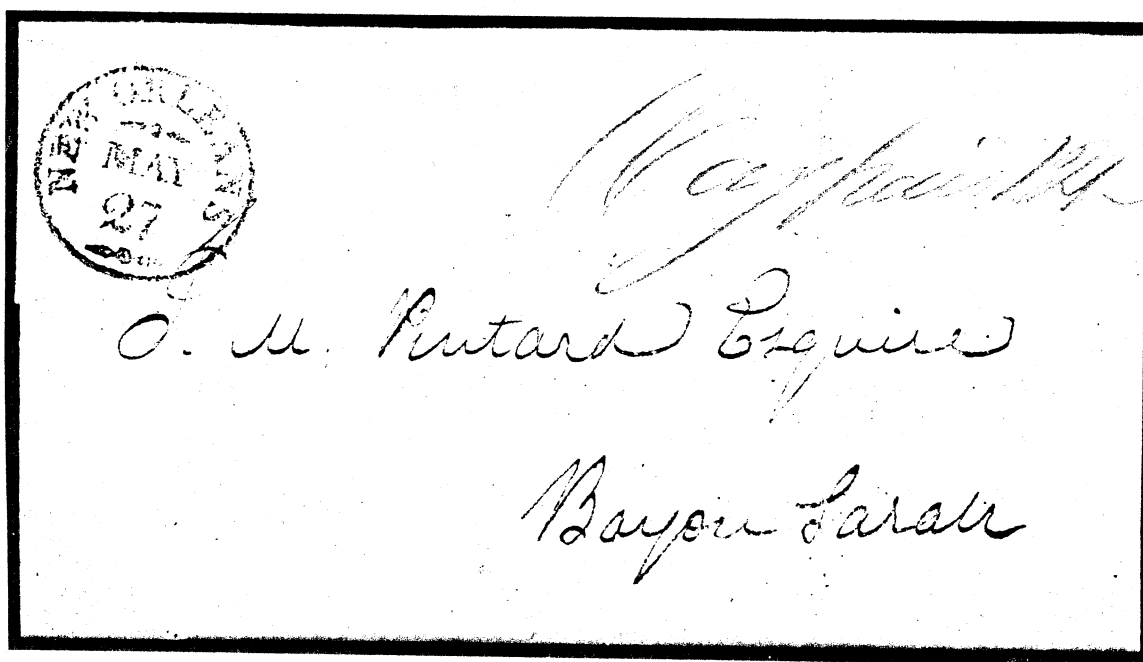 NEW ORLEANS
MAY
27
Way paid
M. Pintard Esquire
Bayou Sarah